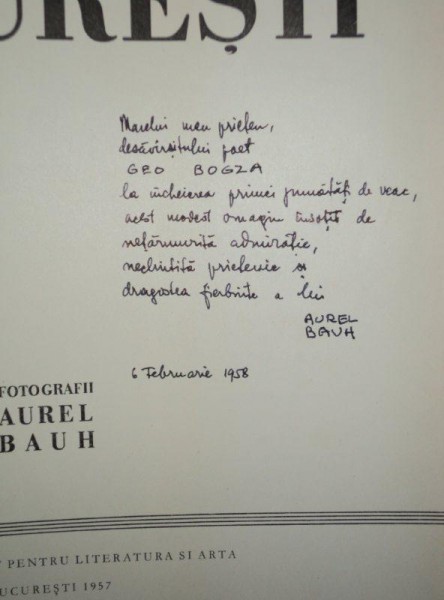 UREȘTI
Marelui meu prieten,
desăvîrșitului poet
GEO BOGZA
la încheierea primei jumătăți de veac,
acest modest omagiu însoțit de
nețărmurită admirație,
neclintită prietenie și
dragostea fierbinte a lui
AUREL
BAUH
6 Februarie 1958
FOTOGRAFII
AUREL
BAUH
PENTRU LITERATURA SI ARTA
BUCUREȘTI 1957